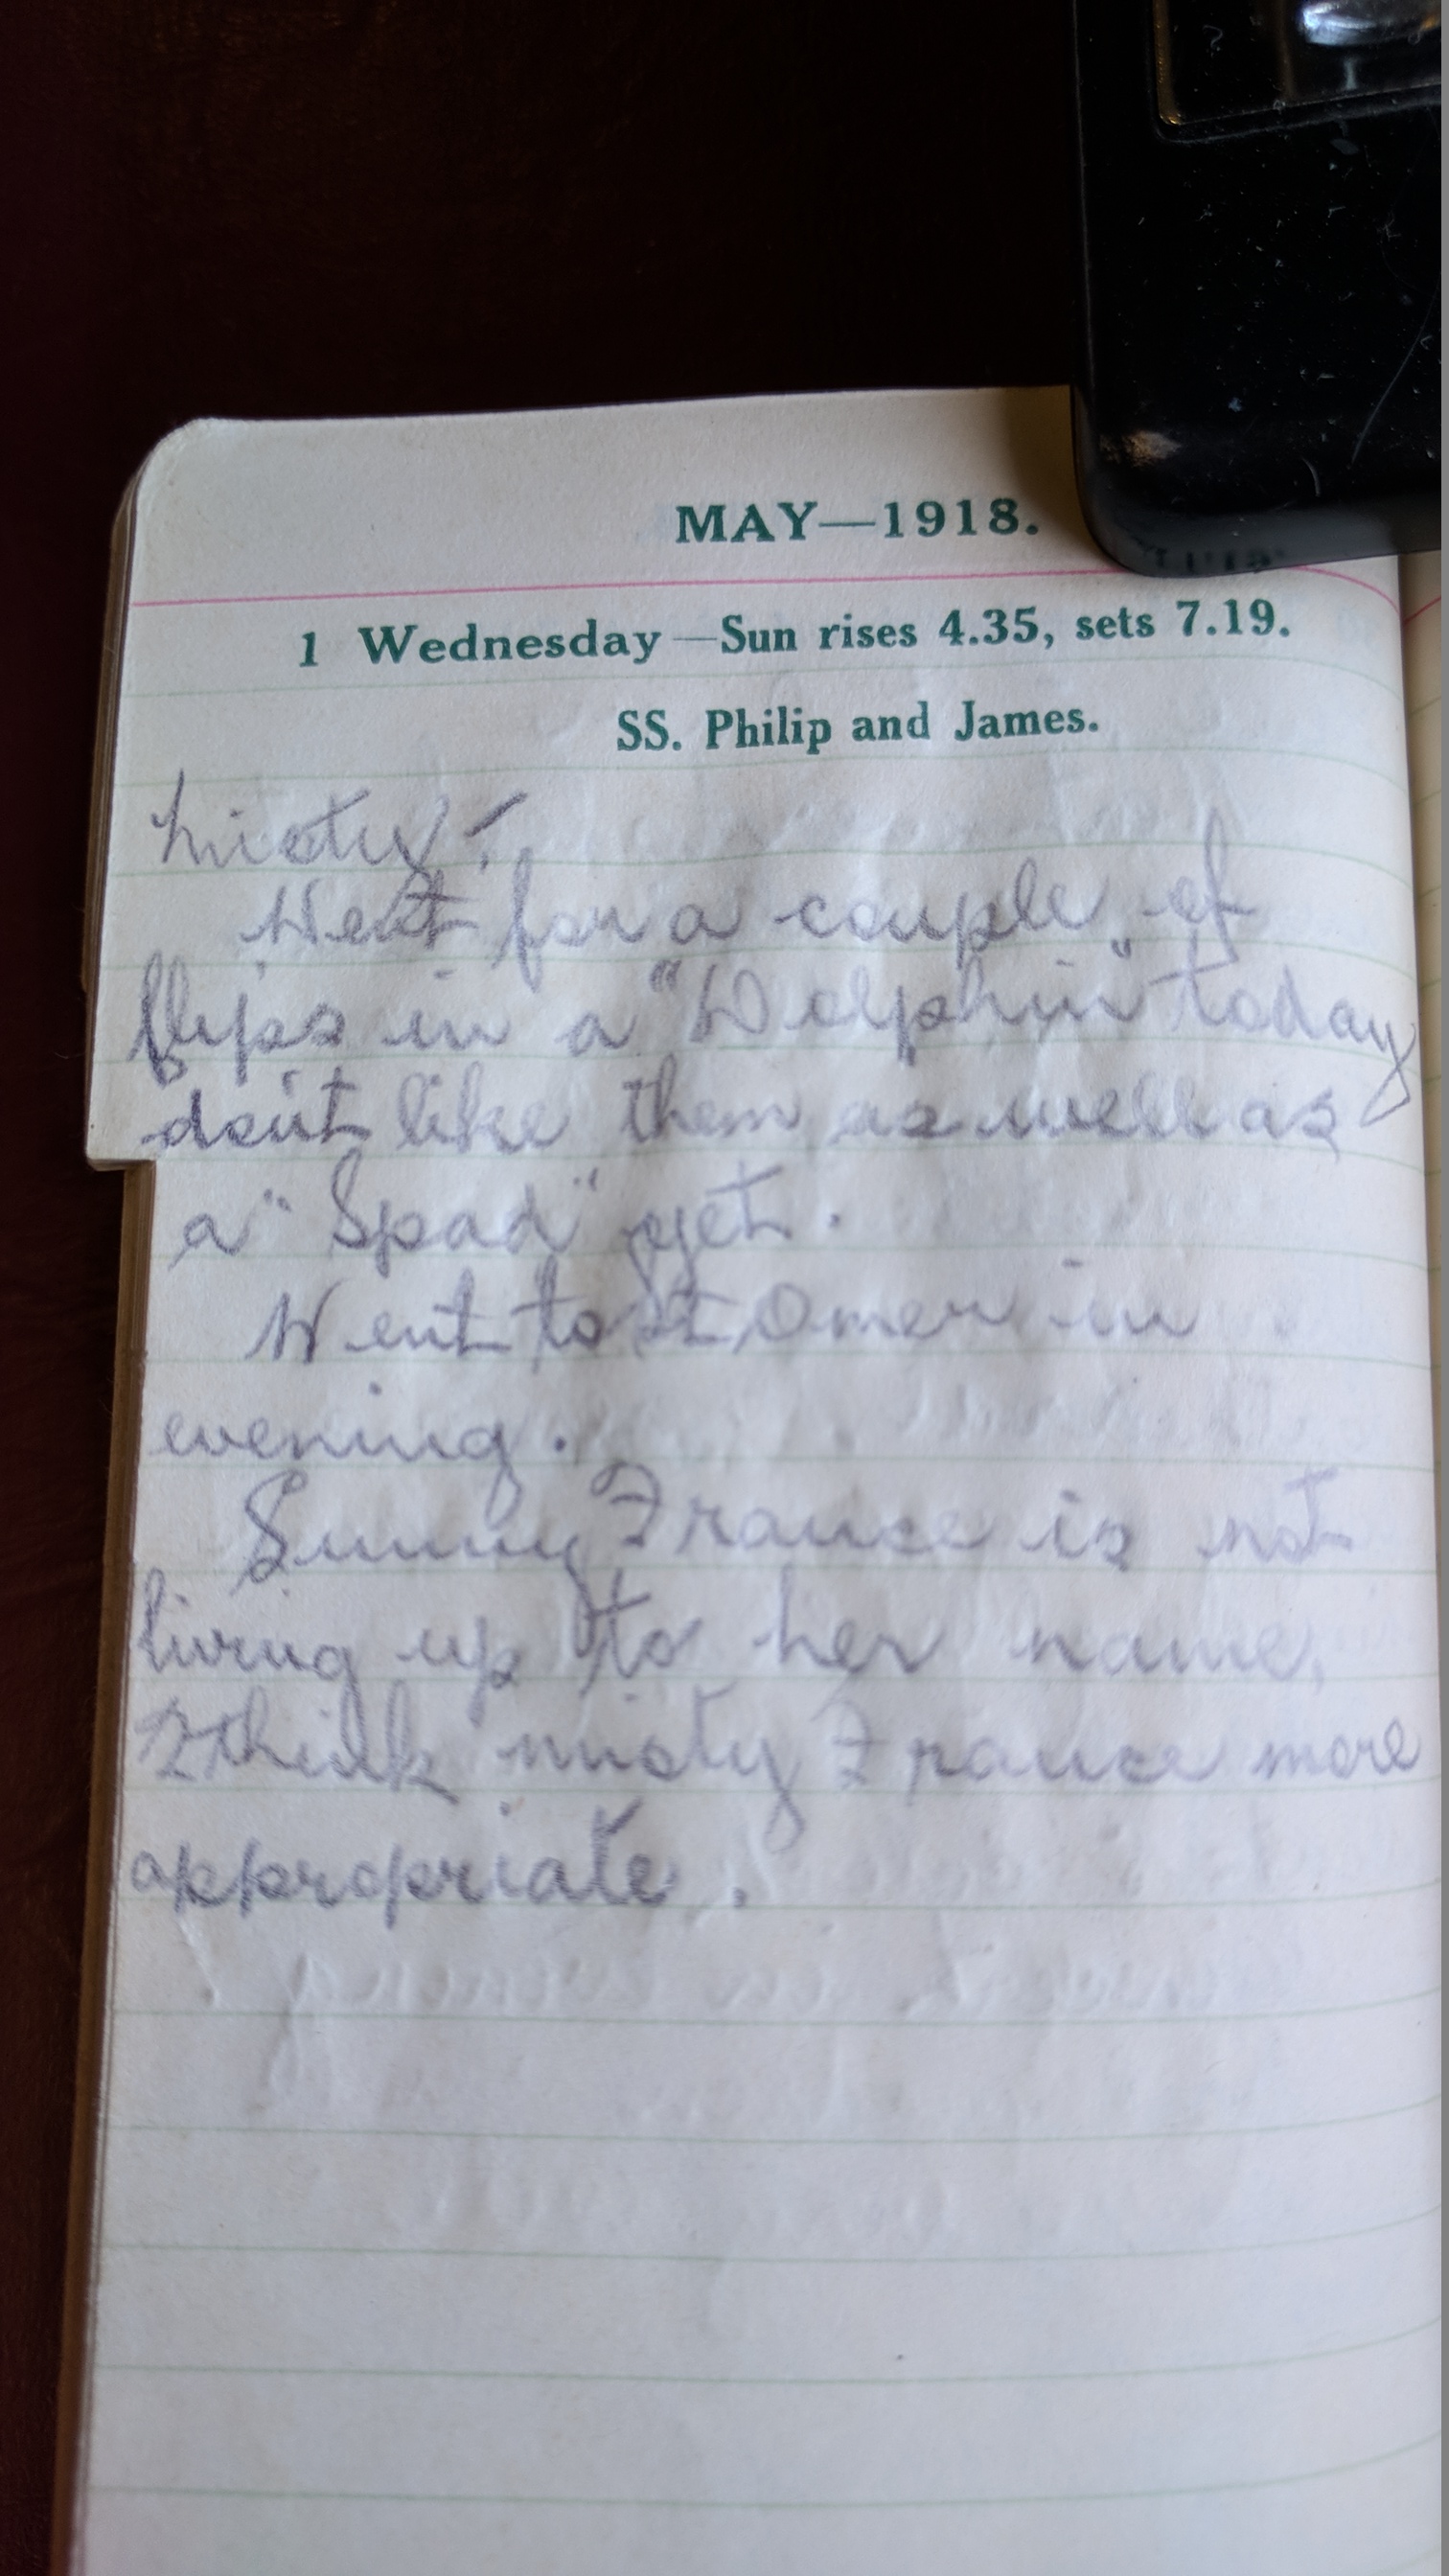 MAY—1918.
1 Wednesday—Sun rises 4.35, sets 7.19.
SS. Philip and James.
Misty!
Went for a couple of
flips in a "Dolphin" today
don't like them as well as
a "Spad" yet.
Went to St Omer in
evening.
Sunny France is not
living up to her name,
I think misty France more
appropriate.